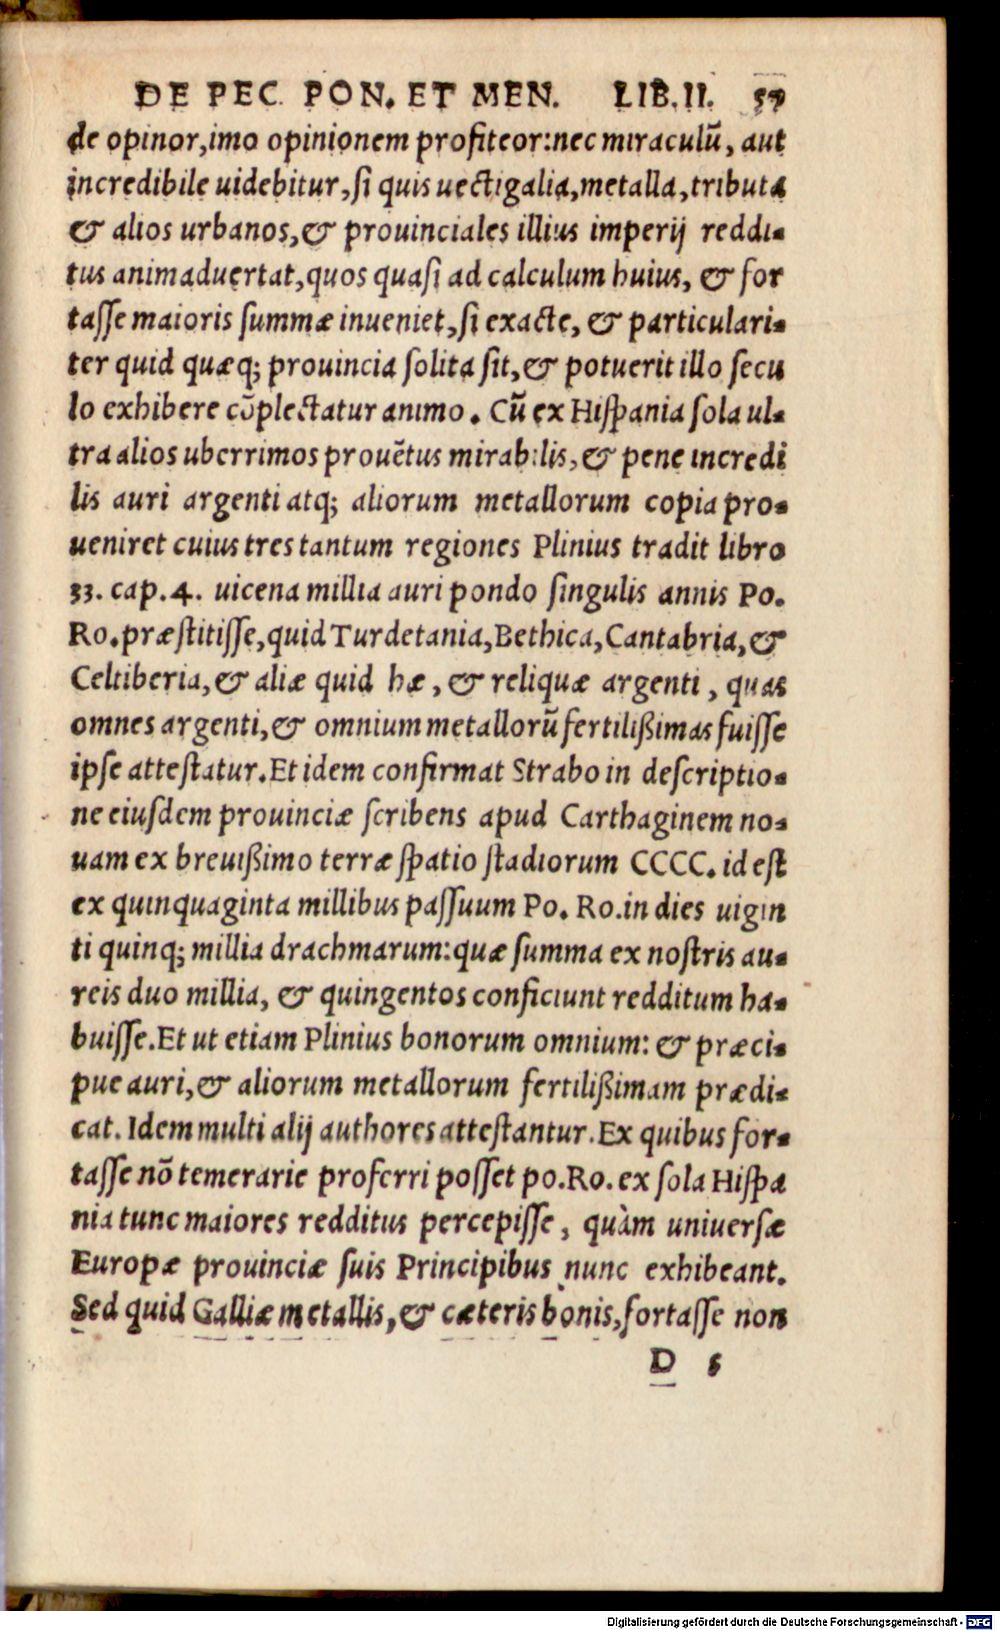 DE PEC. PON. ET MEN. LIB. II. 57
de opinor, imo opinionem profiteor: nec miraculū, aut
incredibile uidebitur, si quis uectigalia, metalla, tributa
& alios urbanos, & prouinciales illius imperij reddi-
tus animaduertat, quos quasi ad calculum huius, & for
tasse maioris summæ inueniet, si exacte, & particulari-
ter quid quæq; prouincia solita sit, & potuerit illo secu
lo exhibere cōplectatur animo. Cū ex Hispania sola ul-
tra alios uberrimos prouētus mirabilis, & pene incredi
lis auri argenti atq; aliorum metallorum copia pro-
ueniret cuius tres tantum regiones Plinius tradit libro
33. cap. 4. uicena millia auri pondo singulis annis Po.
Ro. præstitisse, quid Turdetania, Bethica, Cantabria, &
Celtiberia, & aliæ quid hæ, & reliquæ argenti, quas
omnes argenti, & omnium metallorū fertilißimas fuisse
ipse attestatur. Et idem confirmat Strabo in descriptio-
ne eiusdem prouinciæ scribens apud Carthaginem no-
uam ex breuißimo terræ spatio stadiorum CCCC. id est
ex quinquaginta millibus passuum Po. Ro. in dies uigin
ti quinq; millia drachmarum: quæ summa ex nostris au-
reis duo millia, & quingentos conficiunt redditum ha-
buisse. Et ut etiam Plinius bonorum omnium: & præci-
pue auri, & aliorum metallorum fertilißimam prædi-
cat. Idem multi alij authores attestantur. Ex quibus for-
tasse nō temerarie proferri posset po. Ro. ex sola Hispa
nia tunc maiores redditus percepisse, quàm uniuersæ
Europæ prouinciæ suis Principibus nunc exhibeant.
Sed quid Galliæ metallis, & cæteris bonis, fortasse non
D 5
Digitalisierung gefördert durch die Deutsche Forschungsgemeinschaft - DFG